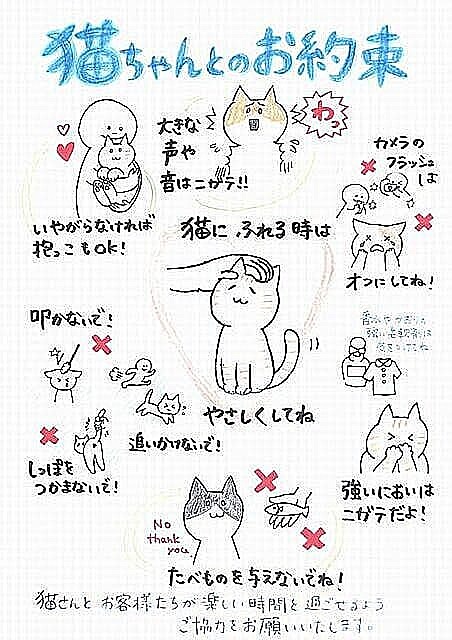 猫ちゃんとのお約束
大きな
声や
音はニガテ!!
わっ
カメラの
フラッシュは
オフにしてね!
いやがらなければ
抱っこもOK!
猫に ふれる時は
やさしくしてね
叩かないで!
追いかけないで!
しっぽを
つかまないで!
香水やかおりの
強い柔軟剤は
気をつけてね
強いにおいは
ニガテだよ!
No
thank
you.
たべものを与えないでね!
猫さんと お客様たちが楽しい時間を過ごせるよう
ご協力をお願いいたします。